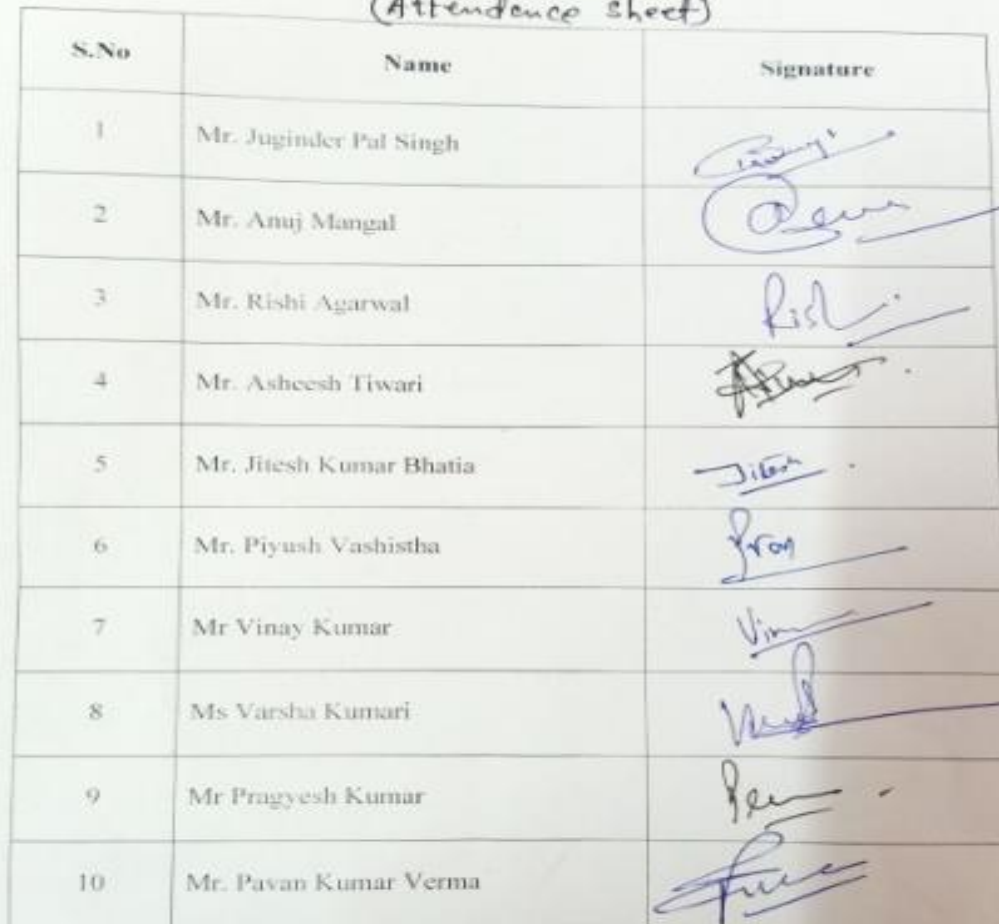 (Attendence sheet)
S.No Name Signature
1 Mr. Juginder Pal Singh
2 Mr. Anuj Mangal
3 Mr. Rishi Agarwal Rishi
4 Mr. Asheesh Tiwari
5 Mr. Jitesh Kumar Bhatia Jitesh
6 Mr. Piyush Vashistha
7 Mr Vinay Kumar
8 Ms Varsha Kumari
9 Mr Pragyesh Kumar
10 Mr. Pavan Kumar Verma